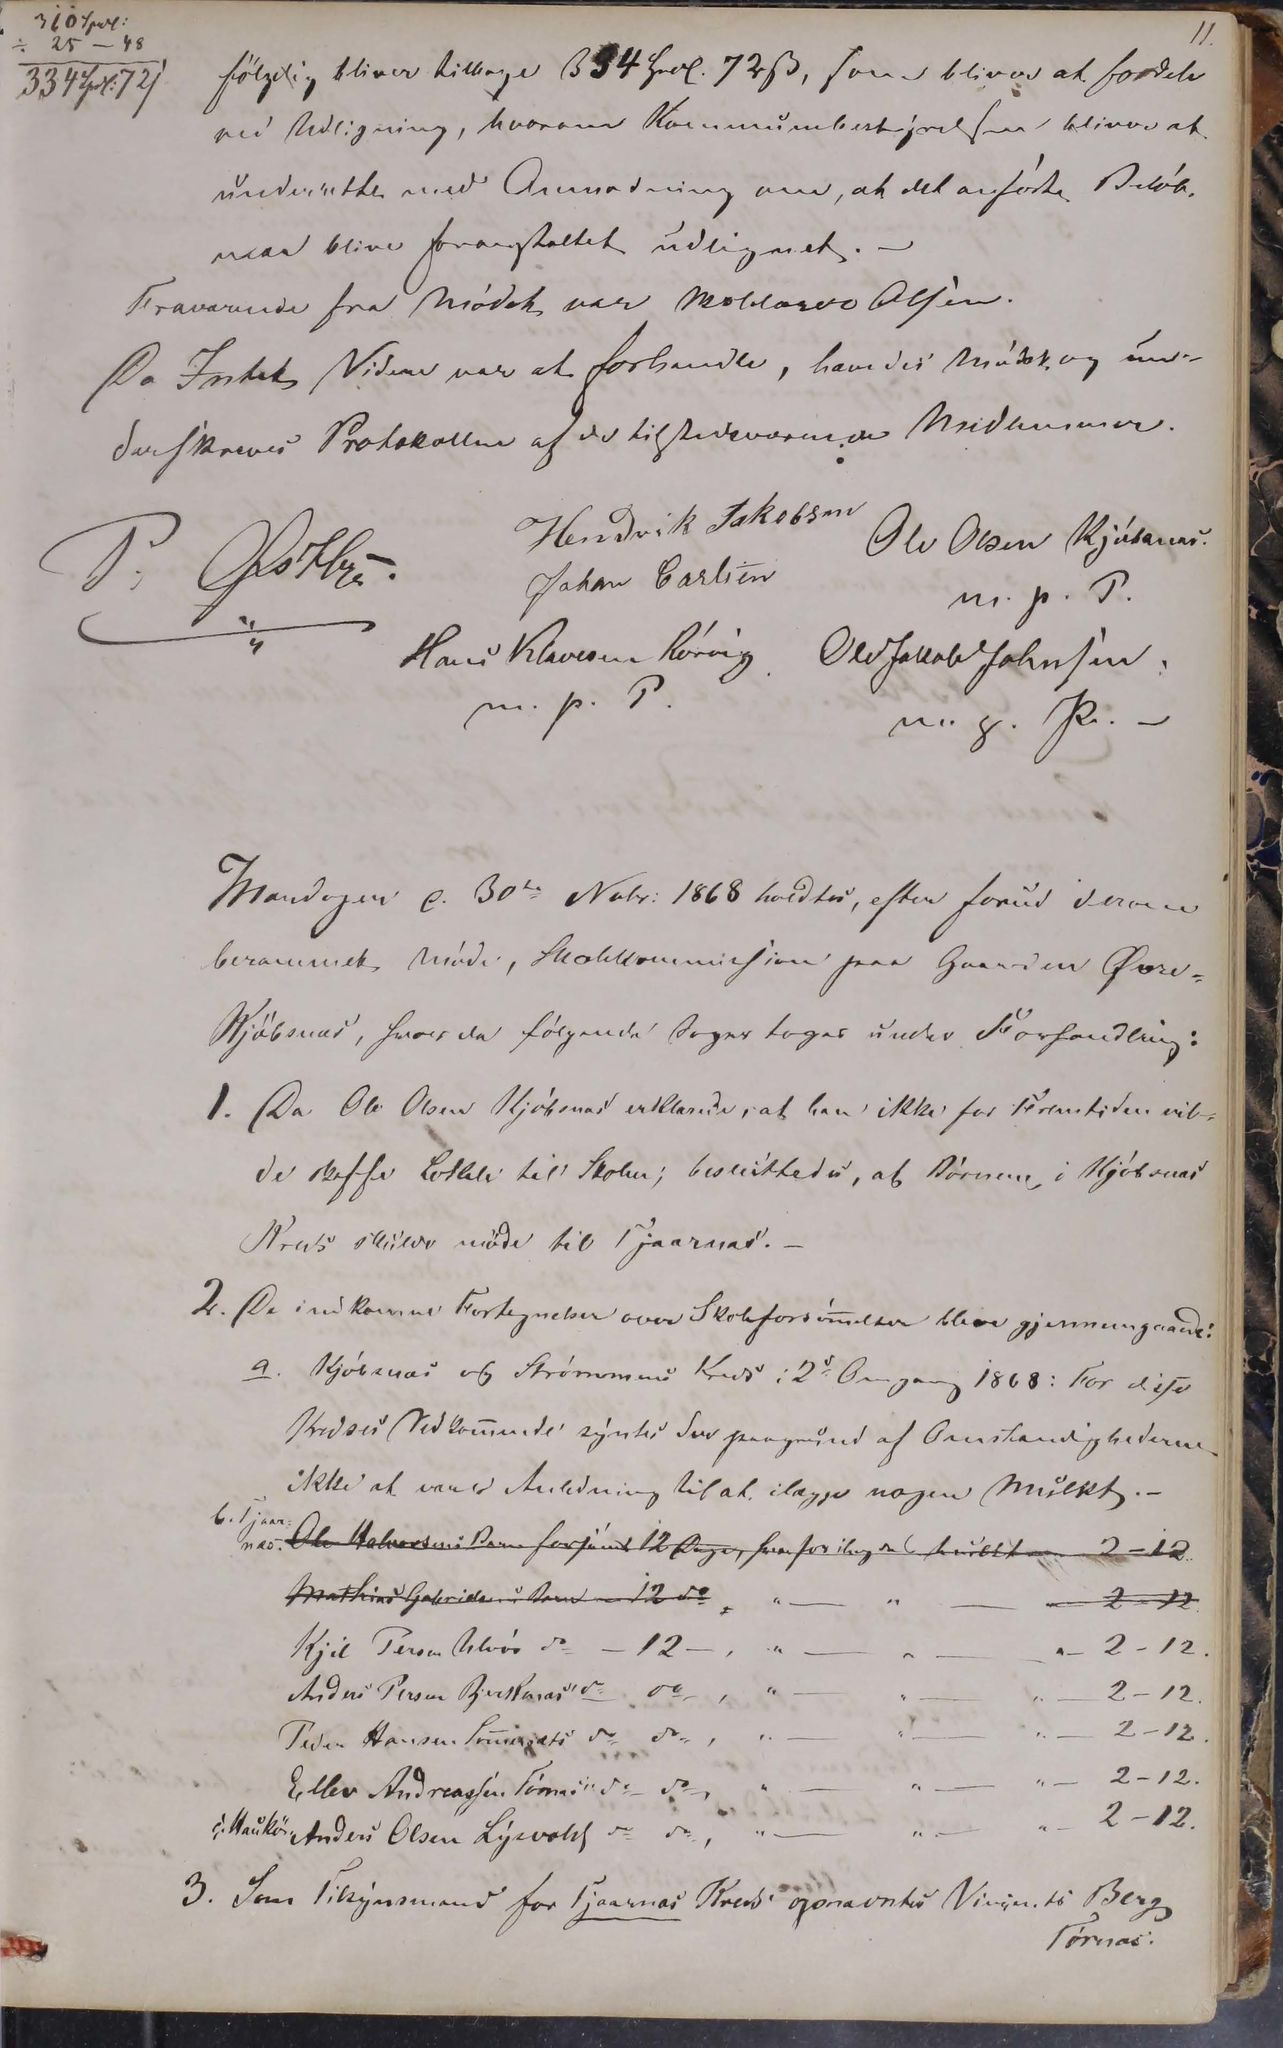 11.
310 Spd:
÷ 25 – 48
334 Spd: 72ß
fölgelig bliver tilbage 334 Spd. 72ß, som bliver at fordele
ved Udligning, hvorom Kommunebestyrelsen bliver at
underrette med Anmodning om, at det anförte Belöb
maa blive foranstaltet udlignet. –
Fraværende fra Mödet var Meldarve Olsen.
Da Intet Videre var at forhandle, hævedes Mödet og un-
derskreves Protokollen af de tilstedeværende Medlemmer.
P. Östbye.
Hendrik Jakobsen
Ole Olsen Kjöbsnæs.
Johan Carlsen
m. p. P.
Hans Klavesen Rörvig
Ole Jakob Johnsen.
m. p. P.
m. p. P. –
Mandagen d. 30te Novbr: 1868 holdtes, efter forud derom
berammet Möde, Skolekommission paa Gaarden Øvre-
Kjöbsnæs, hvor da fölgende Sager toges under Forhandling:
1. Da Ole Olsen Kjöbsnæs erklærede, at han ikke for Fremtiden vil-
de skaffe Lokale til Skolen, besluttedes, at Börnene i Kjöbsnæs
Kreds skulde möde til Tjaarnæs. –
2. De indkomne Fortegnelser over Skoleforsömmelser bleve gjennemgaaede:
a. Kjöbsnæs og Strömmens Kreds i 2d Omgang 1868: For disse
Kredses Vedkommende syntes der paagrund af Omstændighederne
ikke at være Anledning til at ilægge nogen Mulkt. –
b. Tjaar-
næs. Ole Halvorsens Barn forsömt 12 Dage, hvorfor ilagdes Mulkt – 2 – 12.
Mathias Gabrielsens Barn – 12 do „ – „ – „ – 2 – 12.
Kjel Persen Ulvös do – 12 – , „ – „ – „ – 2 – 12.
Anders Persen Bjerknæs do do , „ – „ – „ – 2 – 12.
Peder Hansen Sommersæts do do , „ – „ – „ – 2 – 12.
Ellev Andreassen Törnæs do do , „ – „ – „ – 2 – 12.
c. Haukö. Anders Olsen Lysvold do do , „ – „ – „ – 2 – 12.
3. Som Tilsynsmand for Tjaarnæs Kreds opnævntes Vincents Berg
Törnæs.